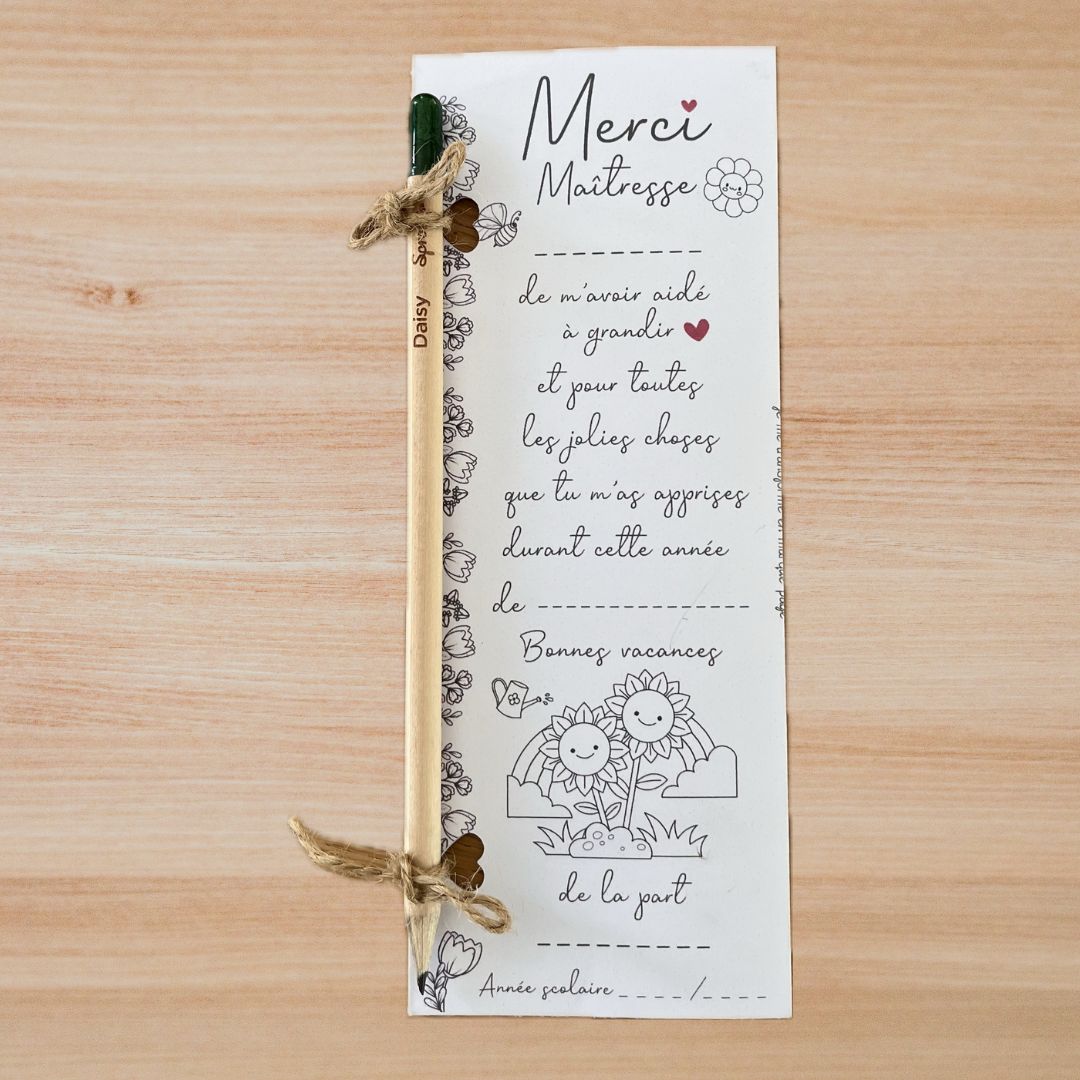 Merci
Maîtresse
de m'avoir aidé
à grandir
et pour toutes
les jolies choses
que tu m'as apprises
durant cette année
de
Bonnes vacances
de la part
Année scolaire _ _ _ _ / _ _ _ _
Daisy